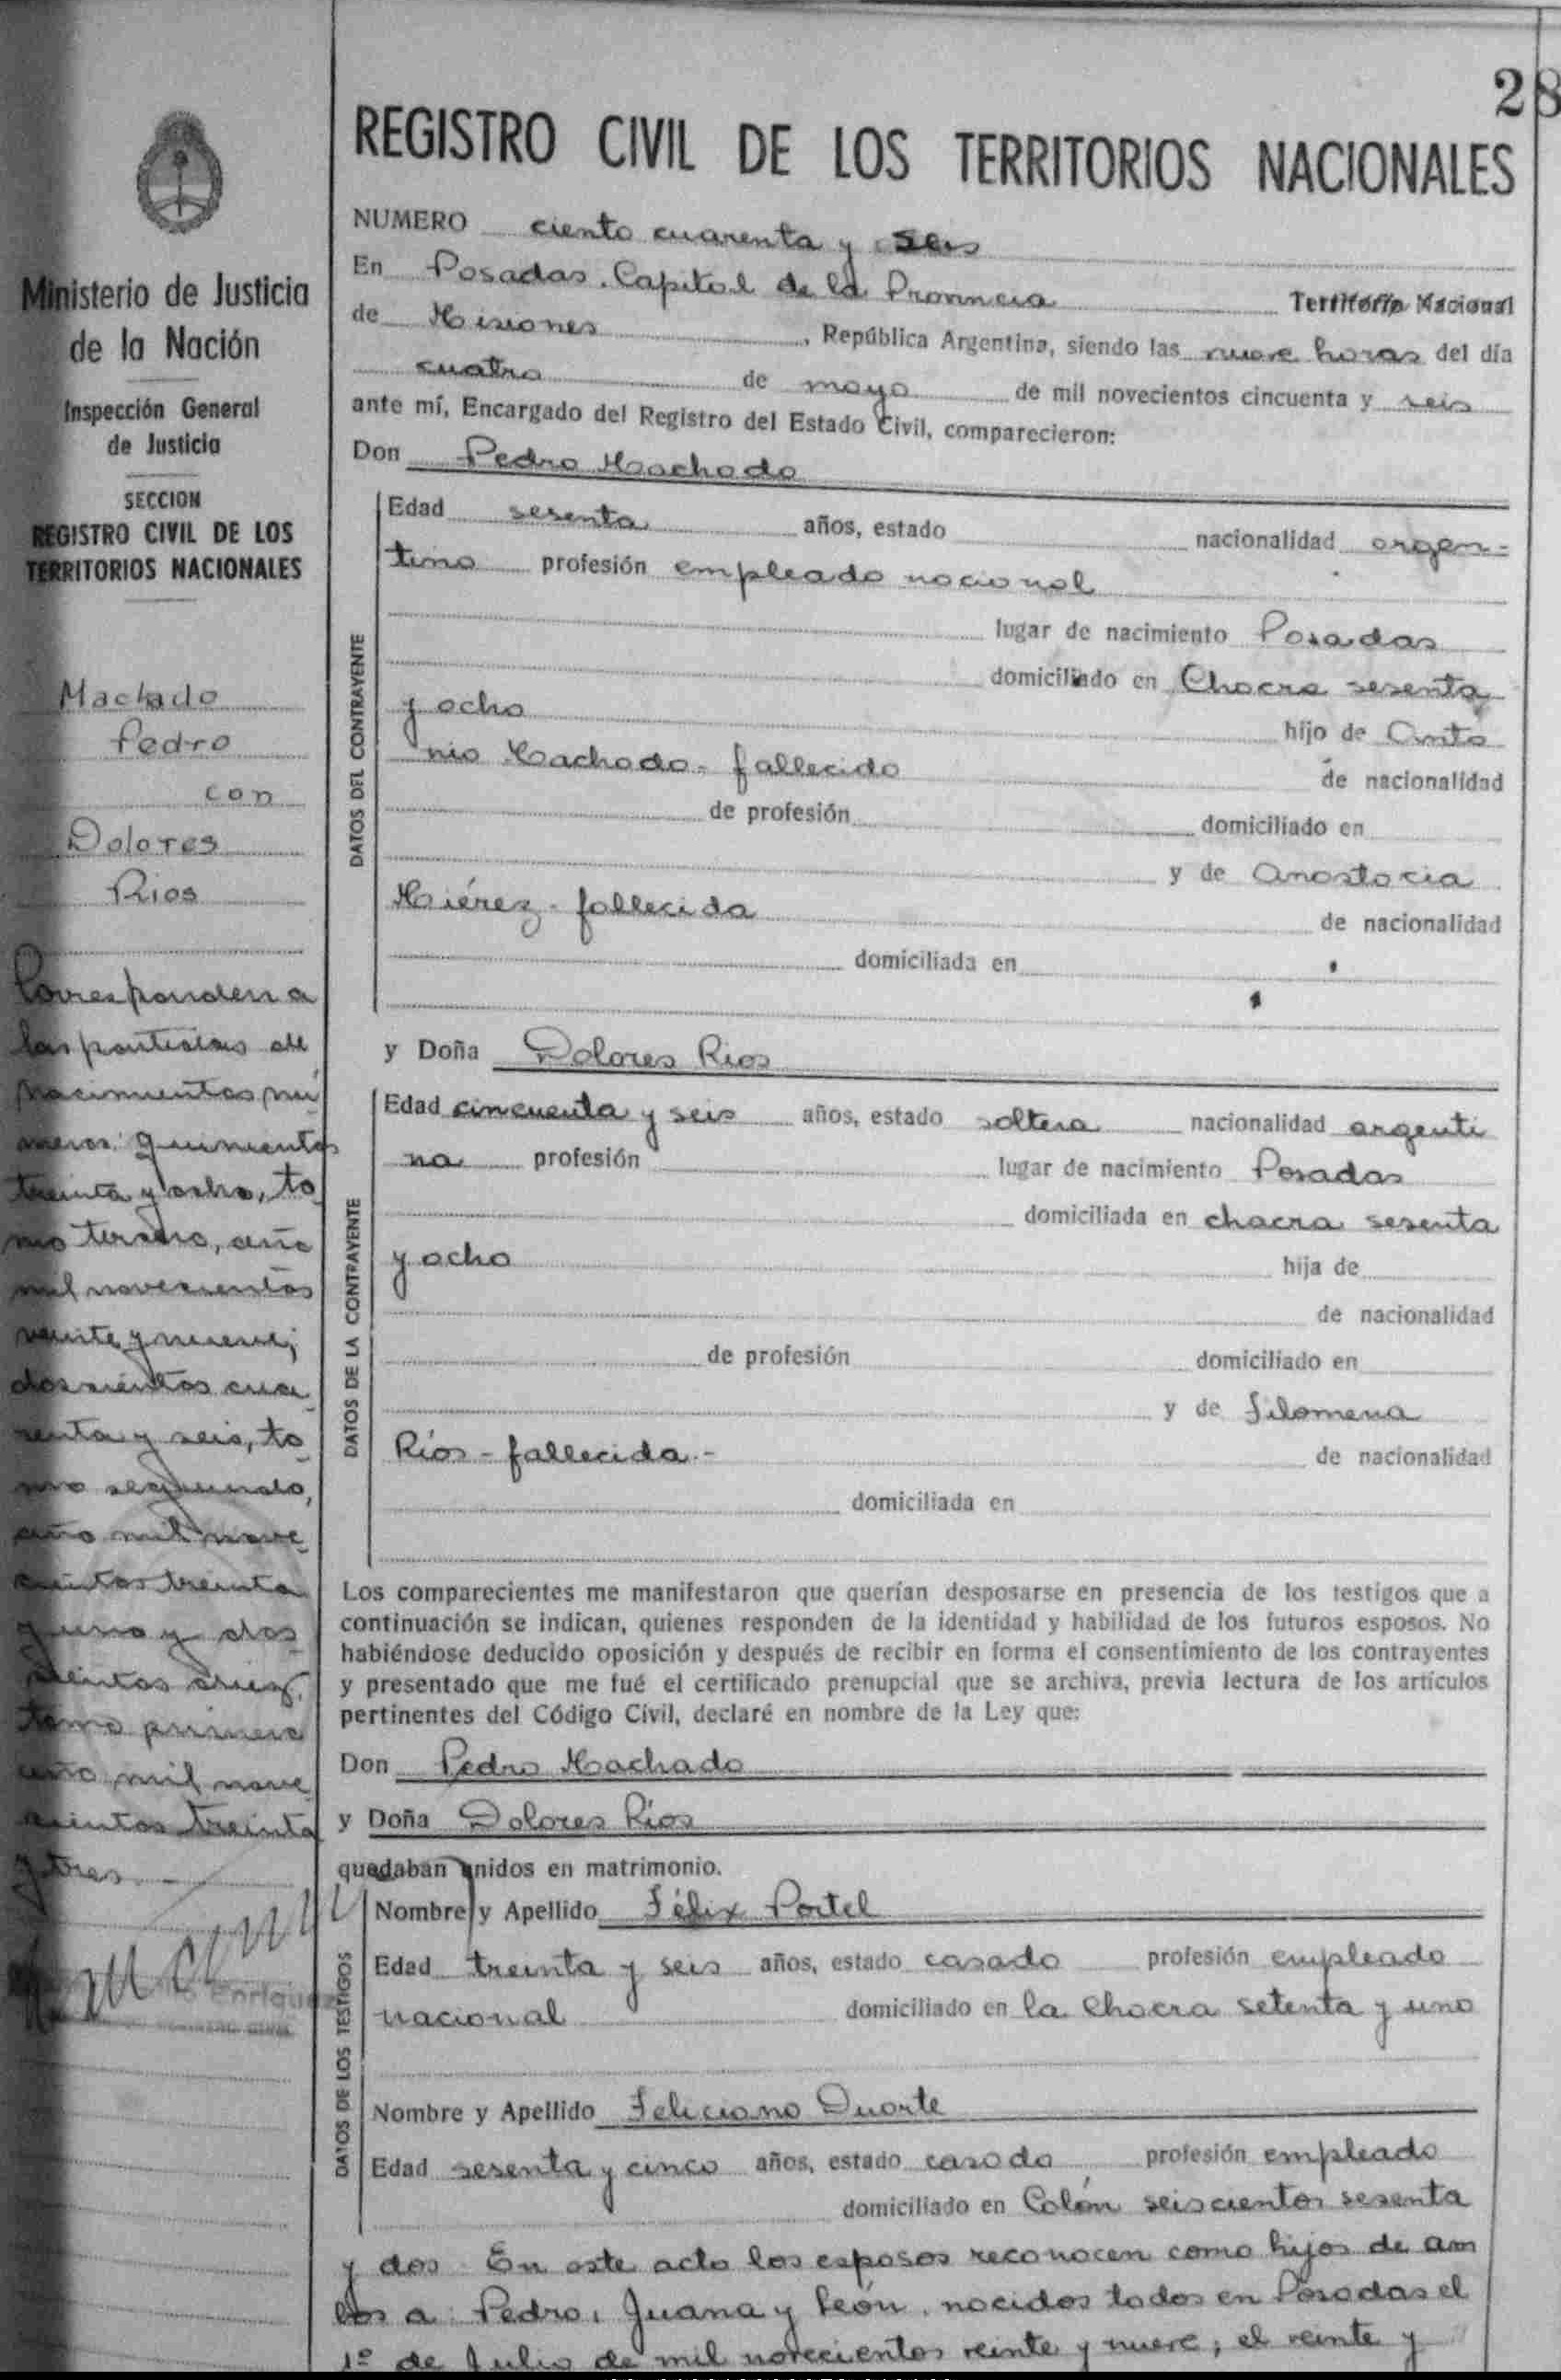 28
REGISTRO CIVIL DE LOS TERRITORIOS NACIONALES
Ministerio de Justicia
de la Nación
Inspección General
de Justicia
SECCION
REGISTRO CIVIL DE LOS
TERRITORIOS NACIONALES
Machado
Pedro
con
Dolores
Rios
Corresponden a
las partidas de
nacimientos nú
meros: quinientos
treinta y ocho, to
mo tercero, año
mil novecientos
veinte y nueve;
doscientos cua
renta y seis, to
mo segundo,
año mil nove
cientos treinta
y uno y dos
cientos diez,
tomo primero
año mil nove
cientos treinta
y tres.
Enriquez
NUMERO ciento cuarenta y seis
En Posadas. Capital de la Provincia Territorio Nacional
de Misiones, República Argentina, siendo las nueve horas del día
cuatro de mayo de mil novecientos cincuenta y seis
ante mí, Encargado del Registro del Estado Civil, comparecieron:
Don Pedro Machado
DATOS DEL CONTRAYENTE
Edad sesenta años, estado nacionalidad argen-
tino profesión empleado nacional
lugar de nacimiento Posadas
domiciliado en Chacra sesenta
y ocho hijo de Anto
nio Machado - fallecido de nacionalidad
de profesión domiciliado en
y de Anastacia
Miérez - fallecida de nacionalidad
domiciliada en
y Doña Dolores Rios
DATOS DE LA CONTRAYENTE
Edad cincuenta y seis años, estado soltera nacionalidad argenti
na profesión lugar de nacimiento Posadas
domiciliada en chacra sesenta
y ocho hija de
de nacionalidad
de profesión domiciliado en
y de Filomena
Ríos - fallecida.- de nacionalidad
domiciliada en
Los comparecientes me manifestaron que querían desposarse en presencia de los testigos que a
continuación se indican, quienes responden de la identidad y habilidad de los futuros esposos. No
habiéndose deducido oposición y después de recibir en forma el consentimiento de los contrayentes
y presentado que me fué el certificado prenupcial que se archiva, previa lectura de los artículos
pertinentes del Código Civil, declaré en nombre de la Ley que:
Don Pedro Machado
y Doña Dolores Ríos
quedaban unidos en matrimonio.
DATOS DE LOS TESTIGOS
Nombre y Apellido Félix Portel
Edad treinta y seis años, estado casado profesión empleado
nacional domiciliado en la Chacra setenta y uno
Nombre y Apellido Feliciano Duarte
Edad sesenta y cinco años, estado casado profesión empleado
domiciliado en Colón seiscientos sesenta
y dos - En este acto los esposos reconocen como hijos de am
bos a: Pedro, Juana y León, nacidos todos en Posadas el
1º de Julio de mil novecientos veinte y nueve; el veinte y